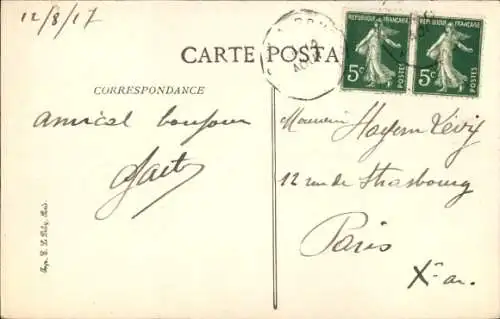 12/8/17
CARTE POSTA
CORRESPONDANCE
amical bonjour
REPUBLIQUE FRANÇAISE
5c
POSTES
REPUBLIQUE FRANÇAISE
5c
POSTES
Monsieur Hayem Lévy
12 rue de Strasbourg
Paris
Xe ar.